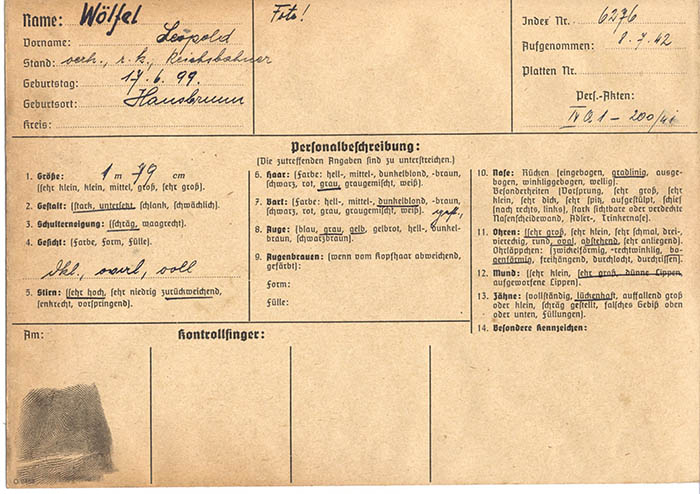 Name: Wölfel
Vorname: Leopold
Stand: verh., r. k., Reichsbahner
Geburtstag: 17. 6. 99.
Geburtsort: Hausbrunn
Kreis:
Foto!
Index Nr. 6276
Aufgenommen: 8. 7. 42
Platten Nr.
Pers.-Akten:
IV A 1 - 200/42
Personalbeschreibung:
(Die zutreffenden Angaben sind zu unterstreichen.)
1. Größe: 1 m 79 cm
(sehr klein, klein, mittel, groß, sehr groß).
2. Gestalt: (stark, untersetzt, schlank, schwächlich).
3. Schulterneigung: (schräg, waagrecht).
4. Gesicht: (Farbe, Form, Fülle).
dkl, oval, voll
5. Stirn: (sehr hoch, sehr niedrig zurückweichend,
senkrecht, vorspringend).
6. Haar: (Farbe: hell-, mittel-, dunkelblond, -braun,
schwarz, rot, grau, graugemischt, weiß).
7. Bart: (Farbe: hell-, mittel-, dunkelblond, -braun,
schwarz, rot, grau, graugemischt, weiß).
8. Auge: (blau, grau, gelb, gelbrot, hell-, dunkel-
braun, schwarzbraun).
9. Augenbrauen: (wenn vom Kopfhaar abweichend,
gefärbt):
Form:
Fülle:
10. Nase: Rücken (eingebogen, gradlinig, ausge-
bogen, winkliggebogen, wellig).
Besonderheiten (Vorsprung, sehr groß, sehr
klein, sehr dick, sehr spitz, aufgestülpt, schief
(nach rechts, links), stark sichtbare oder verdeckte
Nasenscheidewand, Adler-, Trinkernase).
11. Ohren (sehr groß, sehr klein, sehr schmal, drei-,
viereckig, rund, oval, abstehend, sehr anliegend).
Ohrläppchen: (zwickelförmig, -rechtwinklig, bo-
genförmig, freihängend, durchlocht, durchrissen).
12. Mund: (sehr klein, sehr groß, dünne Lippen,
aufgeworfene Lippen).
13. Zähne: (vollständig, lückenhaft, auffallend groß
oder klein, schräg gestellt, falsches Gebiß oben
oder unten, Füllungen).
14. Besondere Kennzeichen:
Am:
Kontrollfinger: